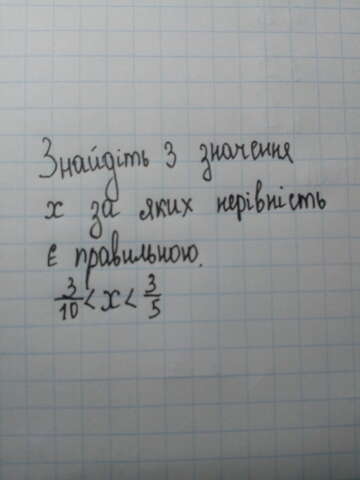 Знайдіть 3 значення
x за яких нерівність
є правильною.
3/10 < x < 3/5